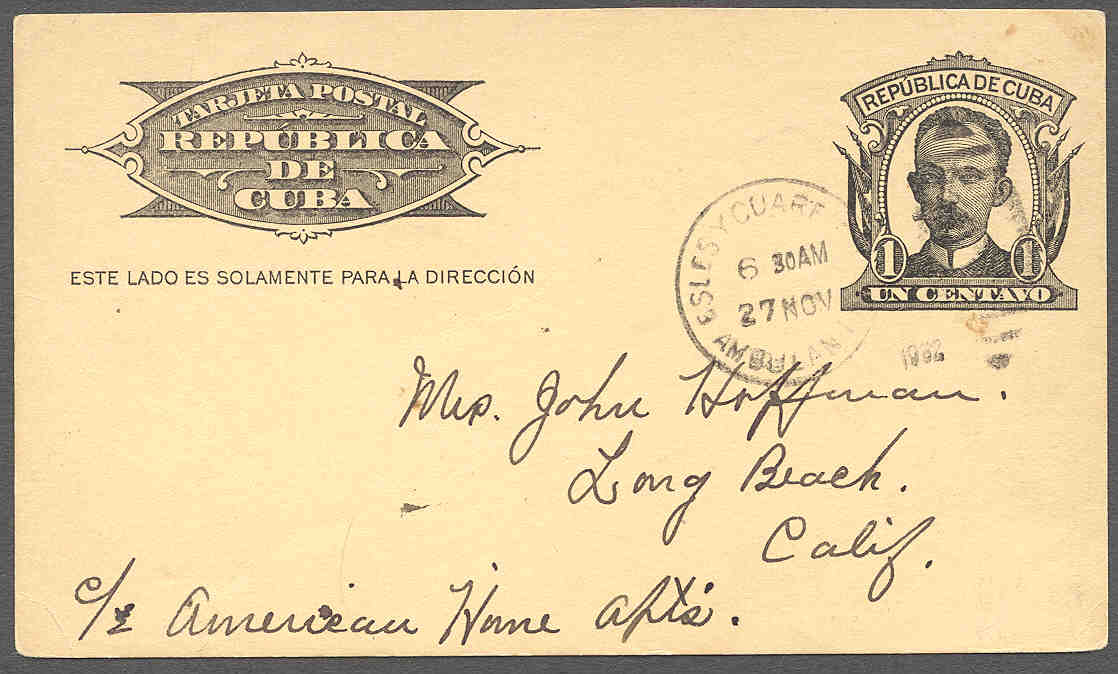 TARJETA POSTAL
REPÚBLICA
DE
CUBA
ESTE LADO ES SOLAMENTE PARA LA DIRECCIÓN
REPÚBLICA DE CUBA
1 1
UN CENTAVO
ESLES Y CUART
6 30AM
27 NOV
AMBULANT
Mrs. John Hoffman.
Long Beach.
Calif.
American Home Apts.